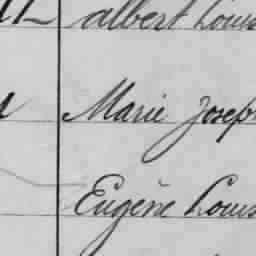 albert Louis
Marie Joseph
Eugène Louis